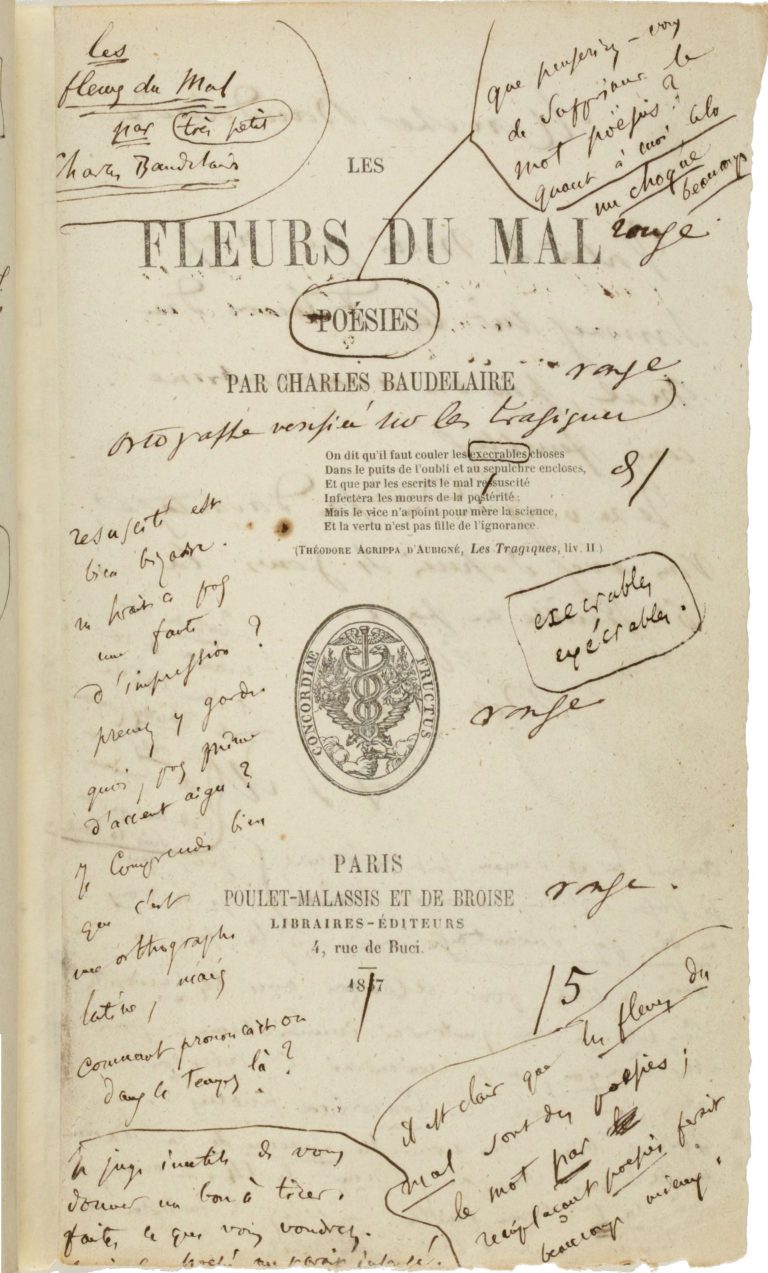 les
fleurs du Mal
par très petit
Charles Baudelaire
que penseriez-vous
de supprimer le
mot poësies?
quant à moi cela
me choque
beaucoup
LES
FLEURS DU MAL
rouge.
POÉSIES
PAR CHARLES BAUDELAIRE
rouge
ortographe verifiée sur les tragiques
On dit qu'il faut couler les execrables choses
Dans le puits de l'oubli et au sepulchre encloses,
Et que par les escrits le mal resuscité
Infectera les mœurs de la postérité;
Mais le vice n'a point pour mère la science,
Et la vertu n'est pas fille de l'ignorance.
(THÉODORE AGRIPPA D'AUBIGNÉ, Les Tragiques, liv. II.)
resuscité est
bien bizarre.
ne serait-ce pas
une faute
d'impression?
prenez y garde.
quoi, pas même
d'accent aigu?
Je comprends bien
que c'est
une orthographe
latine, mais
comment prononçait-on
dans ce temps là?
execrables
exécrables.
CONCORDIÆ FRUCTUS
rouge
PARIS
POULET-MALASSIS ET DE BROISE
rouge.
LIBRAIRES-ÉDITEURS
4, rue de Buci.
1857
/5
il est clair que les fleurs du
mal sont des poësies;
le mot par
remplaçant poësies ferait
beaucoup mieux.
Je juge inutile de vous
donner un bon à tirer.
faites ce que vous voudrez.